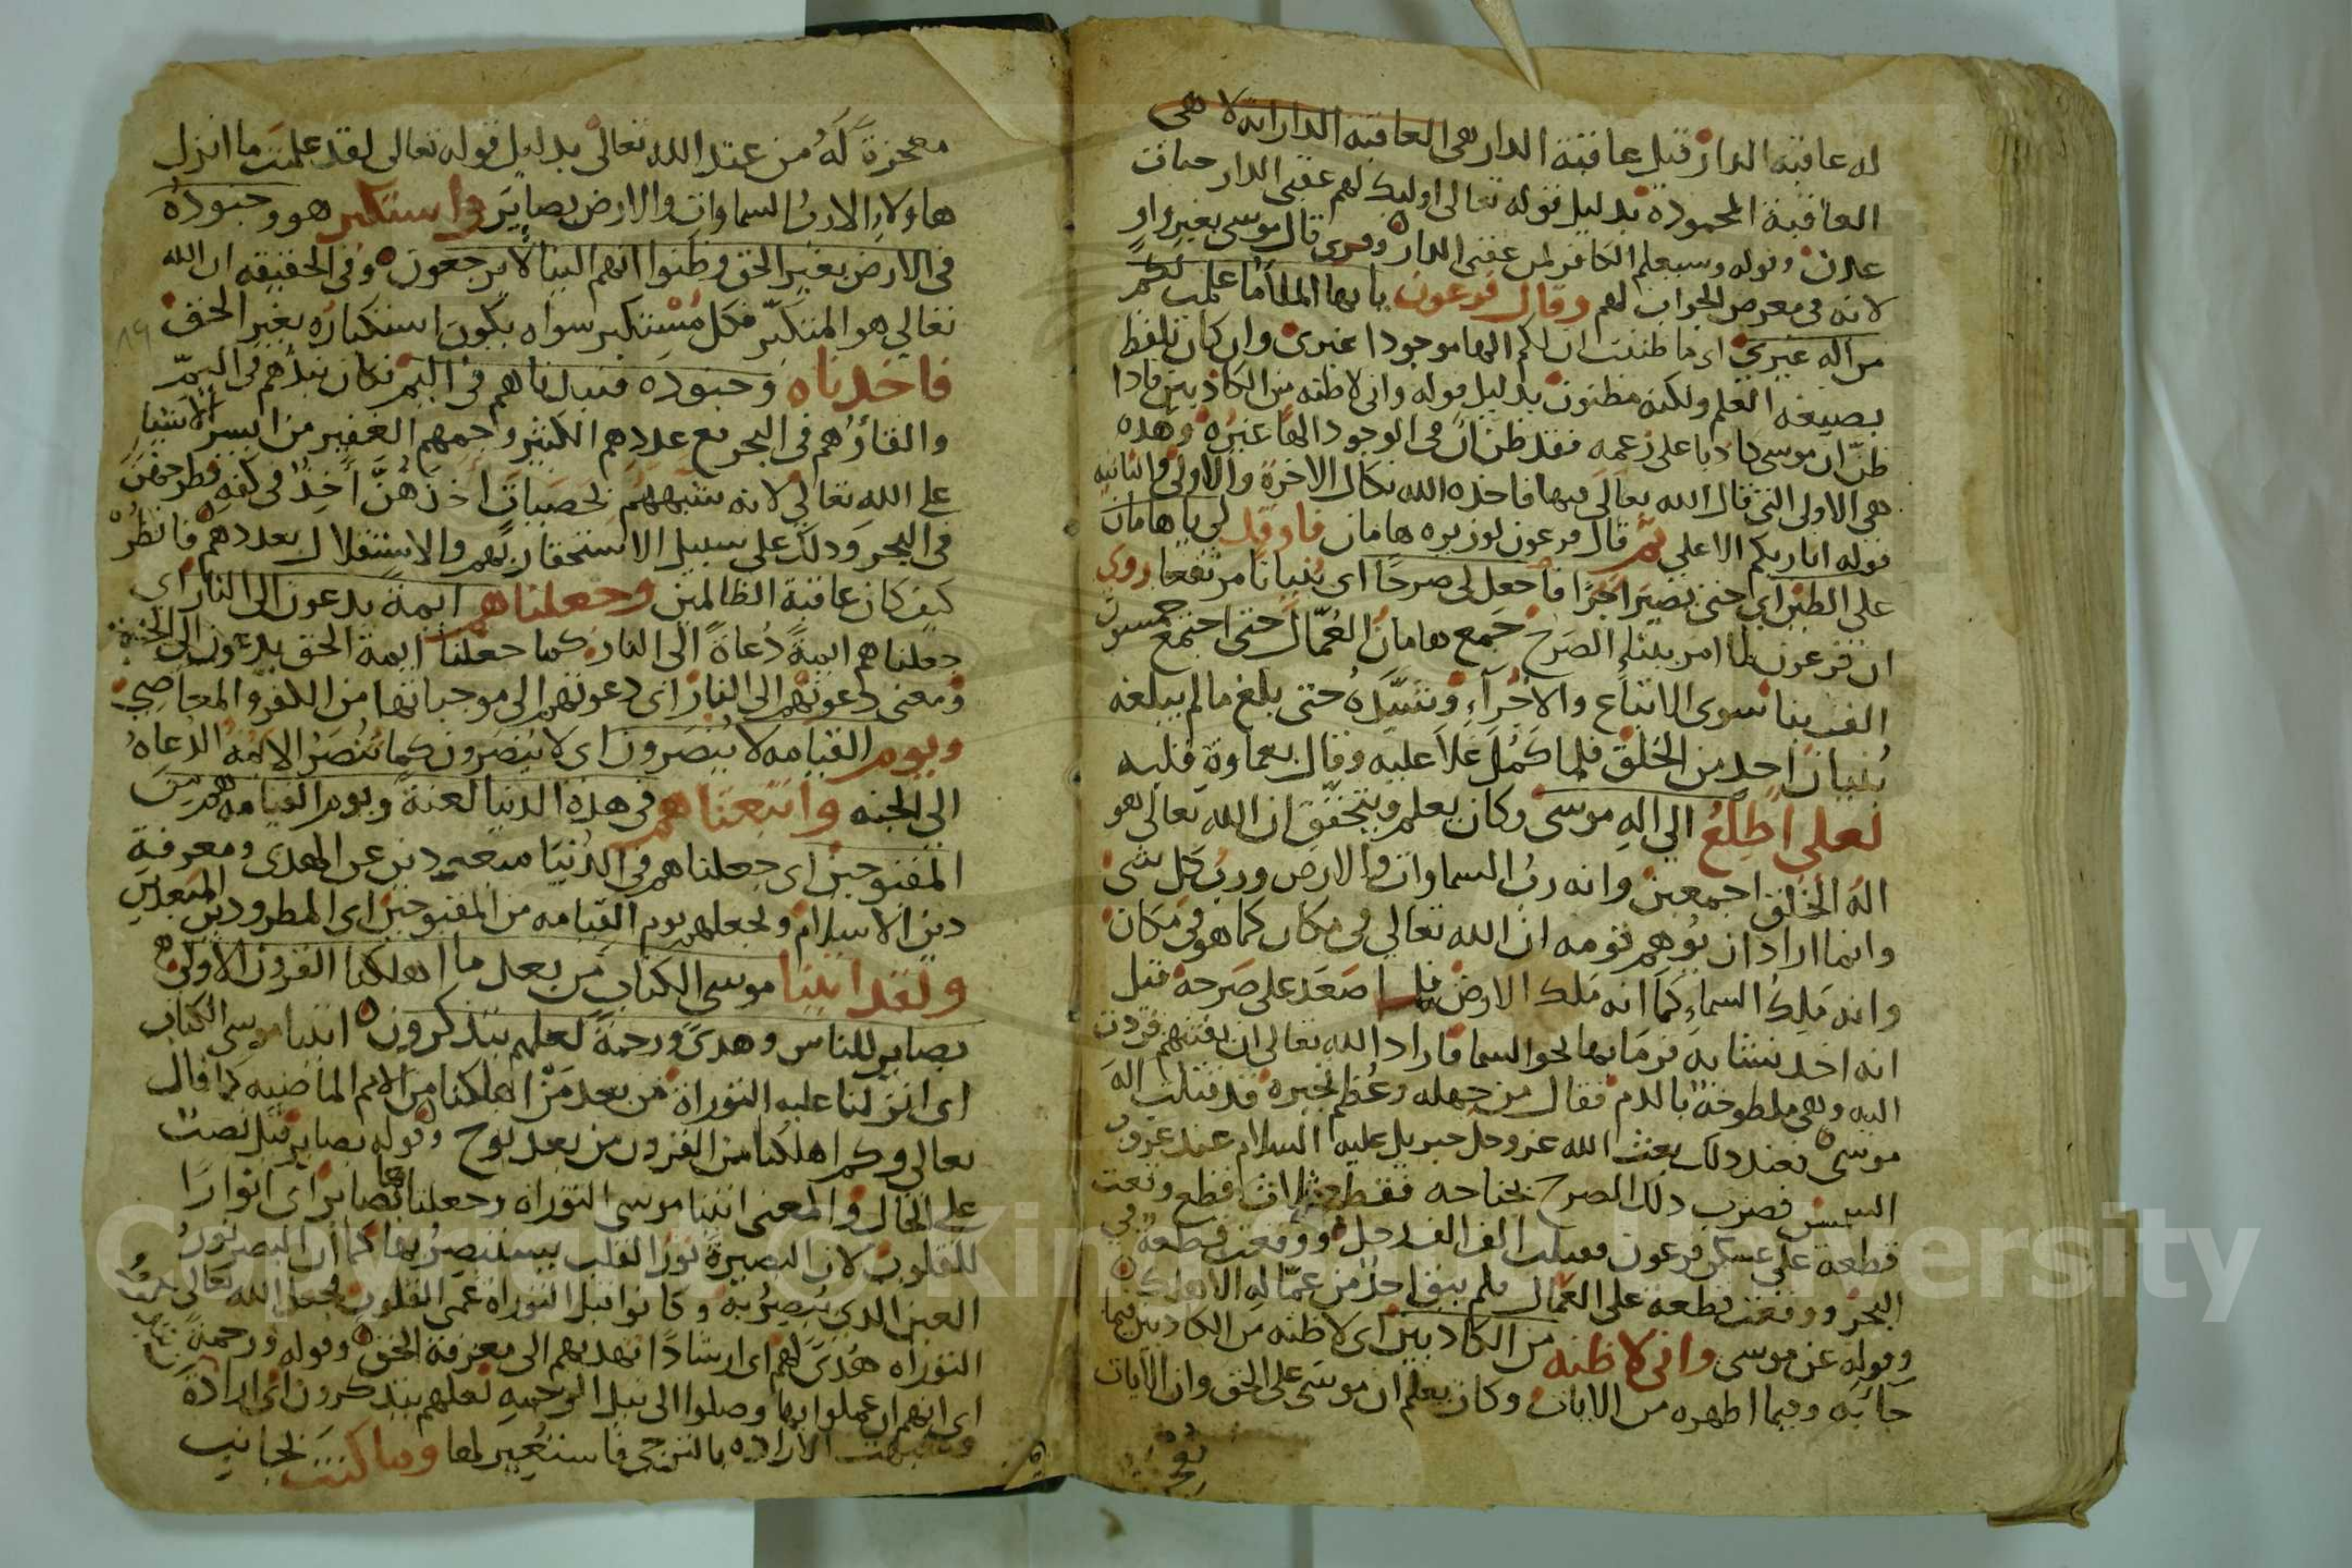 له عاقبة الدار قيل عاقبة الدار هى العاقبة الدار انه لا هى
العاقبة المحمودة بدليل قوله تعالى اوليك لهم عقبى الدار جنات
عدن وقوله وسيعلم الكافر لمن عقبى الدار وقرى قال موسى بغير واو
لانه فى معرض الجواب لهم وقال فرعون يا ايها الملأ ما علمت لكم
من اله غيري اى ما ظننت ان لكم الها موجودا غيرى وان كان بلفظ
بصيغه العلم ولكنه مظنون بدليل قوله وانى لاظنه من الكاذبين فاذا
ظن ان موسى كاذبا على زعمه فقد ظن ان فى الوجود الها غيره وهذه
هى الاولى التى قال الله تعالى فيها فاخذه الله نكال الاخرة والاولى والثانيه
قوله انا ربكم الاعلى ثم قال فرعون لوزيره هامان فاوقد لي يا هامان
على الطين اي حتى تصير اجرا فاجعل لى صرحا اى بنيانا مرتفعا روي
ان فرعون لما امر ببناء الصرح جمع هامان العمال حتى اجتمع خمسون
الف بنا سوى الاتباع والاجرآء وشيده حتى بلغ مالم يبلغه
بنيان احد من الخلق فلما كمل علا عليه وقال بعماوة قلبه
لعلي اطلع الي اله موسى وكان يعلم ويتحقق ان الله تعالى هو
اله الخلق اجمعين وانه رب السماوات والارض ورب كل شى
وانما اراد ان يوهم قومه ان الله تعالي فى مكان كما هو فى مكان
وانه ملك السماء كما انه ملك الارض فلما صعد على صرحه قيل
انه اخذ نشابه فرمابها نحو السما فاراد الله تعالى ان يفتنهم فردت
اليه وهى ملطوخة بالدم فقال من جهله وعظم تجبره قد قتلت اله
موسى فعند ذلك بعث الله عز وجل جبريل عليه السلام عند غروب
الشمس فضرب ذلك الصرح بجناحه فقطعه ثلاث قطع وقعت
قطعة على عسكر فرعون فقتلت الف الف رجل ووقعت قطعة في
البحر ووقعت قطعة على العمال فلم يبق احد من عماله الا هلك
وقوله عن موسى وانى لاظنه من الكاذبين اى لاظنه من الكاذبين فيما
جآبه وفيما اظهره من الايات وكان يعلم ان موسى على الحق وان الايات
معجزة له من عند الله تعالى بدليل قوله تعالى لقد علمت ما انزل
هاولاء الا رب السماوات والارض بصاير واستكبر هو وجنوده
فى الارض بغير الحق وظنوا انهم الينا لا يرجعون وفى الحقيقه ان الله
تعالي هو المتكبر فكل مستكبر سواه يكون استكباره بغير الحق
فاخذناه وجنوده فنبدناهم فى اليم فكان نبذهم فى اليم
والقاؤهم فى البحر مع عددهم الكثير وجمهم الغفير من ايسر الاشيا
على الله تعالي لانه شبههم بحصيات اخذهن آخذ فى كفه فطرحهن
فى البحر وذلك على سبيل الاستحقار بهم والاستقلال بعددهم فانظر
كيف كان عاقبة الظالمين وجعلناهم ايمة يدعون الى النار اى
جعلناهم ايمة دعاة الى النار كما جعلنا ايمة الحق يدعون الى الجنة
ومعنى دعوتهم الى النار اى دعوتهم الى موجباتها من الكفر والمعاصي
ويوم القيامه لا ينصرون اى لا ينصرون كما تنصر الايمه الدعاه
الى الجنه واتبعناهم فى هذه الدنيا لعنة ويوم القيامه هم من
المقبوحين اى جعلناهم في الدنيا مبعدين عن الهدى ومعرفة
دين الاسلام ونجعلهم يوم القيامه من المقبوحين اى المطرودين المبعدين
ولقد اتينا موسى الكتاب من بعد ما اهلكنا القرون الاولى
بصاير للناس وهدى ورحمة لعلهم يتذكرون اتينا موسى الكتاب
اى انزلنا عليه التوراة من بعد من اهلكنا من الامم الماضيه كما قال
تعالي وكم اهلكنا من القرون من بعد نوح وقوله بصاير قيل نصبت
على الحال والمعنى اتينا موسى التوراه وجعلناها بصاير اى انوارا
للقلوب لان البصيرة نور القلب يستبصر بها كما ان البصر نور
العين الذى تبصر به وكانوا قبل التوراه عمى القلوب فجعل الله تعالى
التوراه هدى لهم اى ارشادا تهديهم الى معرفة الحق وقوله ورحمة
اى انهم ان عملوا بها وصلوا الى نيل الرحمه لعلهم يتذكرون اى ارادة
وشبهت الاراده بالترجى فاستعير لها وما كنت بجانب